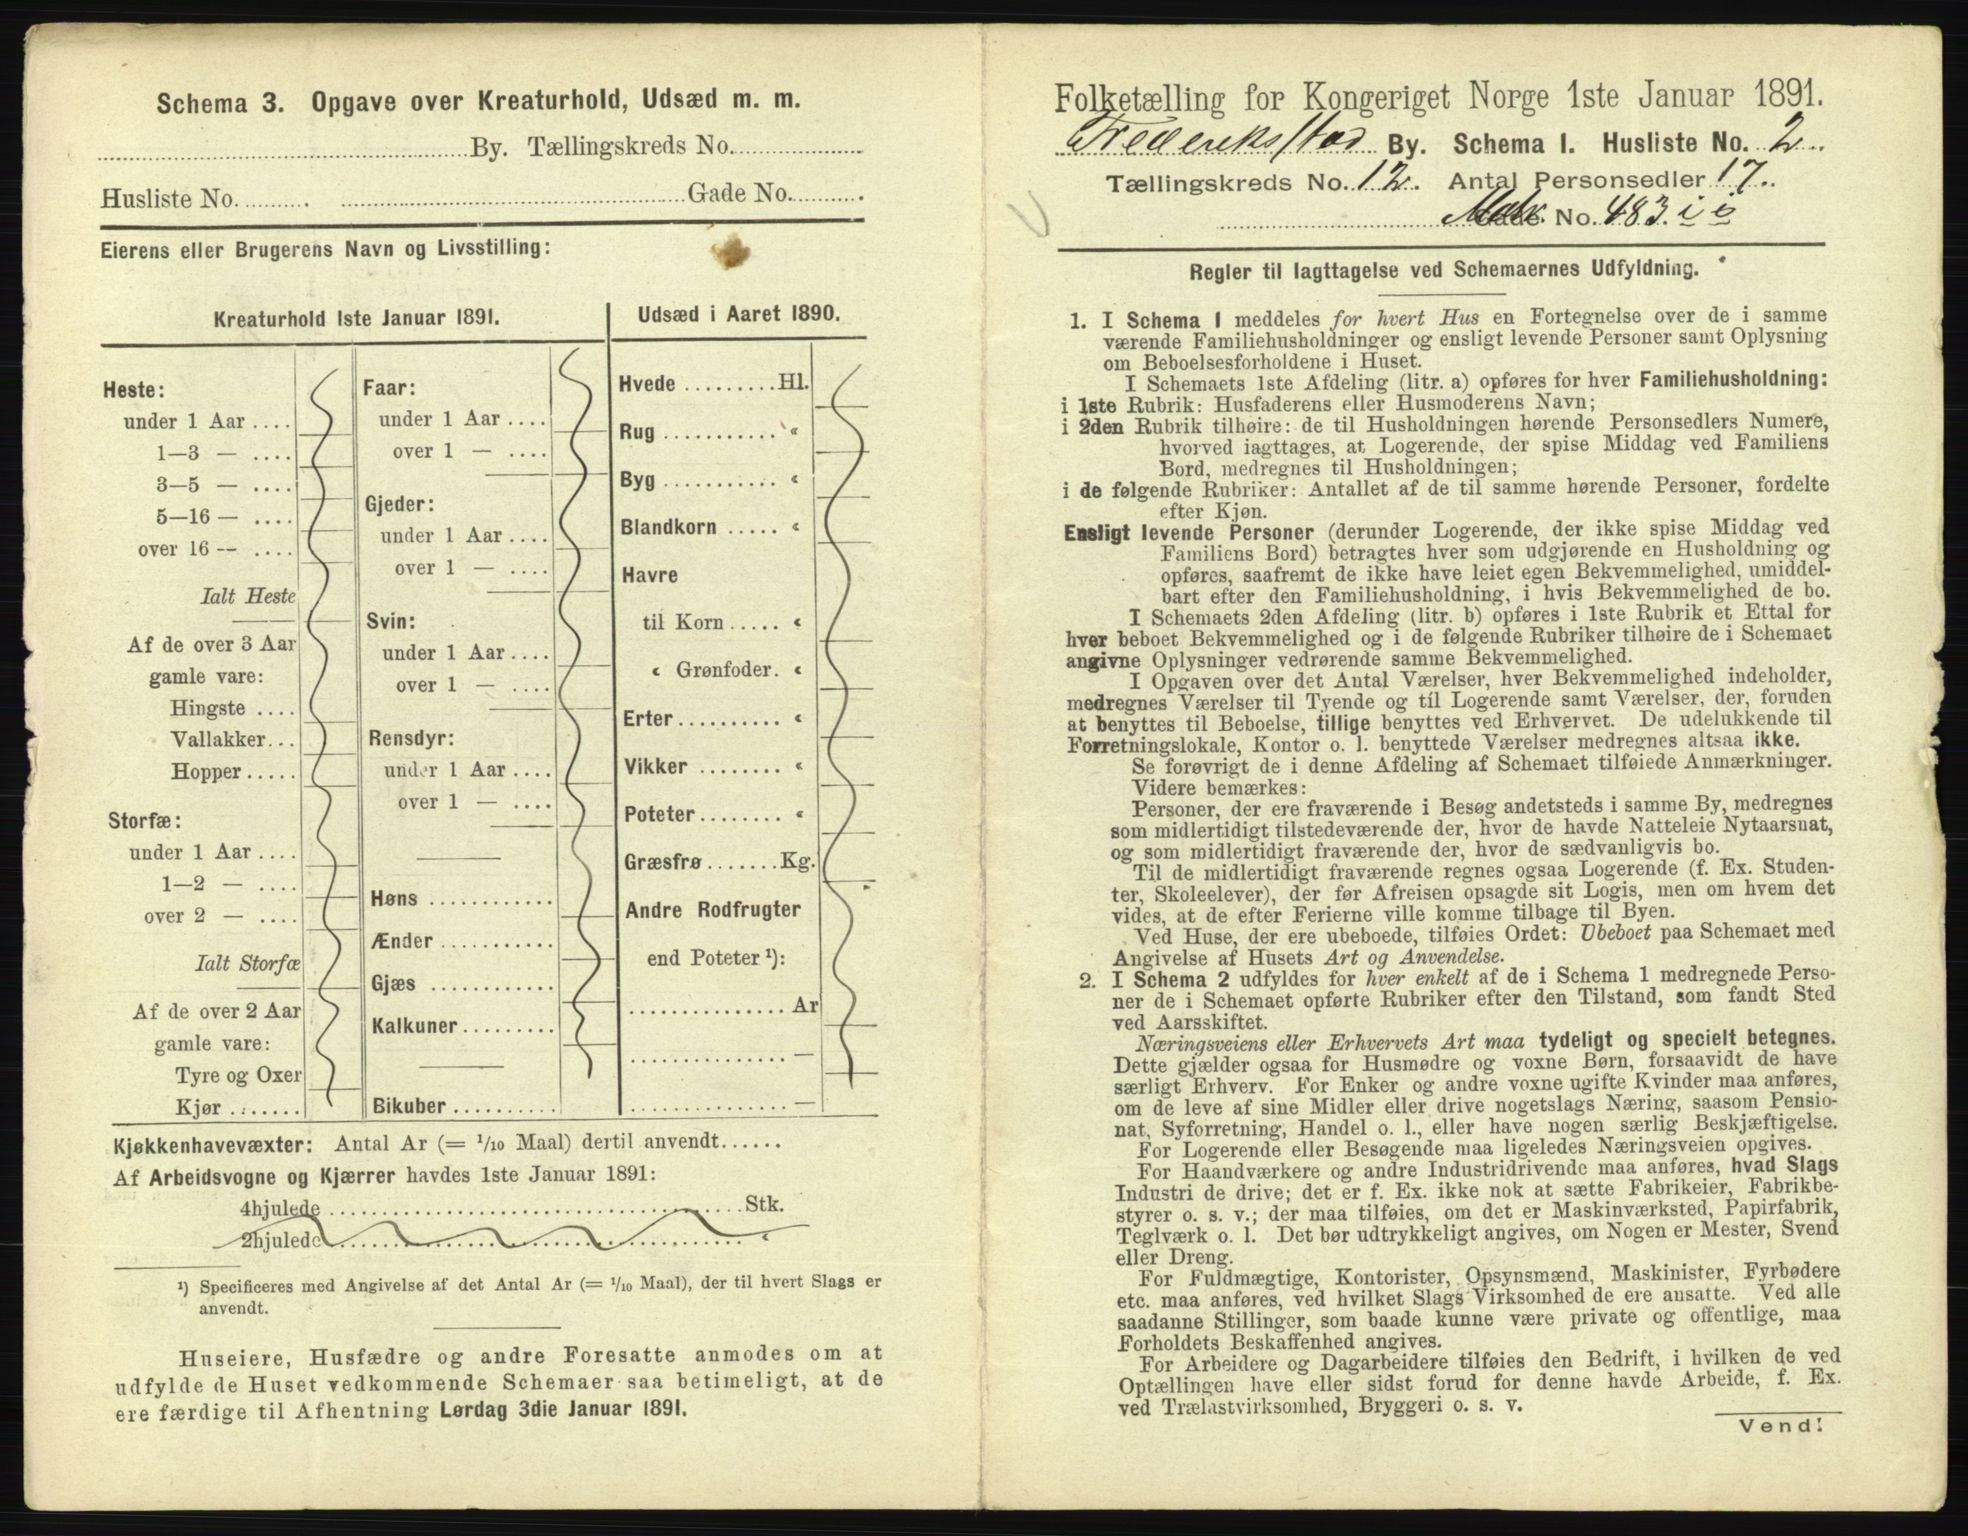 Schema 3. Opgave over Kreaturhold, Udsæd m. m.
By. Tællingskreds No.
Husliste No. Gade No.
Eierens eller Brugerens Navn og Livsstilling:
Kreaturhold 1ste Januar 1891.
Heste:
under 1 Aar ....
1—3 — ....
3—5 — ....
5—16 — ....
over 16 — ....
Ialt Heste
Af de over 3 Aar
gamle vare:
Hingste ....
Vallakker...
Hopper.....
Storfæ:
under 1 Aar ....
1—2 — ....
over 2 — ....
Ialt Storfæ
Af de over 2 Aar
gamle vare:
Tyre og Oxer
Kjør .......
Faar:
under 1 Aar ....
over 1 — ....
Gjeder:
under 1 Aar ....
over 1 — ....
Svin:
under 1 Aar ....
over 1 — ....
Rensdyr:
under 1 Aar ....
over 1 — ....
Høns ............
Ænder ...........
Gjæs ............
Kalkuner.........
Bikuber..........
Udsæd i Aaret 1890.
Hvede .........Hl.
Rug ........... "
Byg ........... "
Blandkorn ..... "
Havre
til Korn ..... "
" Grønfoder. "
Erter .......... "
Vikker ........ "
Poteter........ "
Græsfrø .......Kg.
Andre Rodfrugter
end Poteter ¹):
............... Ar
............... —
............... —
Kjøkkenhavevæxter: Antal Ar (= 1/10 Maal) dertil anvendt......
Af Arbeidsvogne og Kjærrer havdes 1ste Januar 1891:
4hjulede ........................................Stk.
2hjulede........................................ "
¹) Specificeres med Angivelse af det Antal Ar (= 1/10 Maal), der til hvert Slags er
anvendt.
Huseiere, Husfædre og andre Foresatte anmodes om at
udfylde de Huset vedkommende Schemaer saa betimeligt, at de
ere færdige til Afhentning Lørdag 3die Januar 1891.
Folketælling for Kongeriget Norge 1ste Januar 1891.
Frederikstad By. Schema 1. Husliste No. 2
Tællingskreds No. 12. Antal Personsedler 17.
Matr. No. 483 i i
Regler til Iagttagelse ved Schemaernes Udfyldning.
1. I Schema 1 meddeles for hvert Hus en Fortegnelse over de i samme
værende Familiehusholdninger og ensligt levende Personer samt Oplysning
om Beboelsesforholdene i Huset.
I Schemaets 1ste Afdeling (litr. a) opføres for hver Familiehusholdning:
i 1ste Rubrik: Husfaderens eller Husmoderens Navn;
i 2den Rubrik tilhøire: de til Husholdningen hørende Personsedlers Numere,
hvorved iagttages, at Logerende, der spise Middag ved Familiens
Bord, medregnes til Husholdningen;
i de følgende Rubriker: Antallet af de til samme hørende Personer, fordelte
efter Kjøn.
Ensligt levende Personer (derunder Logerende, der ikke spise Middag ved
Familiens Bord) betragtes hver som udgjørende en Husholdning og
opføres, saafremt de ikke have leiet egen Bekvemmelighed, umiddel-
bart efter den Familiehusholdning, i hvis Bekvemmelighed de bo.
I Schemaets 2den Afdeling (litr. b) opføres i 1ste Rubrik et Ettal for
hver beboet Bekvemmelighed og i de følgende Rubriker tilhøire de i Schemaet
angivne Oplysninger vedrørende samme Bekvemmelighed.
I Opgaven over det Antal Værelser, hver Bekvemmelighed indeholder,
medregnes Værelser til Tyende og til Logerende samt Værelser, der, foruden
at benyttes til Beboelse, tillige benyttes ved Erhvervet. De udelukkende til
Forretningslokale, Kontor o. l. benyttede Værelser medregnes altsaa ikke.
Se forøvrigt de i denne Afdeling af Schemaet tilføiede Anmærkninger.
Videre bemærkes:
Personer, der ere fraværende i Besøg andetsteds i samme By, medregnes
som midlertidigt tilstedeværende der, hvor de havde Natteleie Nytaarsnat,
og som midlertidigt fraværende der, hvor de sædvanligvis bo.
Til de midlertidigt fraværende regnes ogsaa Logerende (f. Ex. Studen-
ter, Skoleelever), der før Afreisen opsagde sit Logis, men om hvem det
vides, at de efter Ferierne ville komme tilbage til Byen.
Ved Huse, der ere ubeboede, tilføies Ordet: Ubeboet paa Schemaet med
Angivelse af Husets Art og Anvendelse.
2. I Schema 2 udfyldes for hver enkelt af de i Schema 1 medregnede Perso-
ner de i Schemaet opførte Rubriker efter den Tilstand, som fandt Sted
ved Aarsskiftet.
Næringsveiens eller Erhvervets Art maa tydeligt og specielt betegnes.
Dette gjælder ogsaa for Husmødre og voxne Børn, forsaavidt de have
særligt Erhverv. For Enker og andre voxne ugifte Kvinder maa anføres,
om de leve af sine Midler eller drive nogetslags Næring, saasom Pensio-
nat, Syforretning, Handel o. l., eller have nogen særlig Beskjæftigelse.
For Logerende eller Besøgende maa ligeledes Næringsveien opgives.
For Haandværkere og andre Industridrivende maa anføres, hvad Slags
Industri de drive; det er f. Ex. ikke nok at sætte Fabrikeier, Fabrikbe-
styrer o. s. v.; der maa tilføies, om det er Maskinværksted, Papirfabrik,
Teglværk o. l. Det bør udtrykkeligt angives, om Nogen er Mester, Svend
eller Dreng.
For Fuldmægtige, Kontorister, Opsynsmænd, Maskinister, Fyrbødere
etc. maa anføres, ved hvilket Slags Virksomhed de ere ansatte. Ved alle
saadanne Stillinger, som baade kunne være private og offentlige, maa
Forholdets Beskaffenhed angives.
For Arbeidere og Dagarbeidere tilføies den Bedrift, i hvilken de ved
Optællingen have eller sidst forud for denne havde Arbeide, f. Ex.
ved Trælastvirksomhed, Bryggeri o. s. v.
Vend!